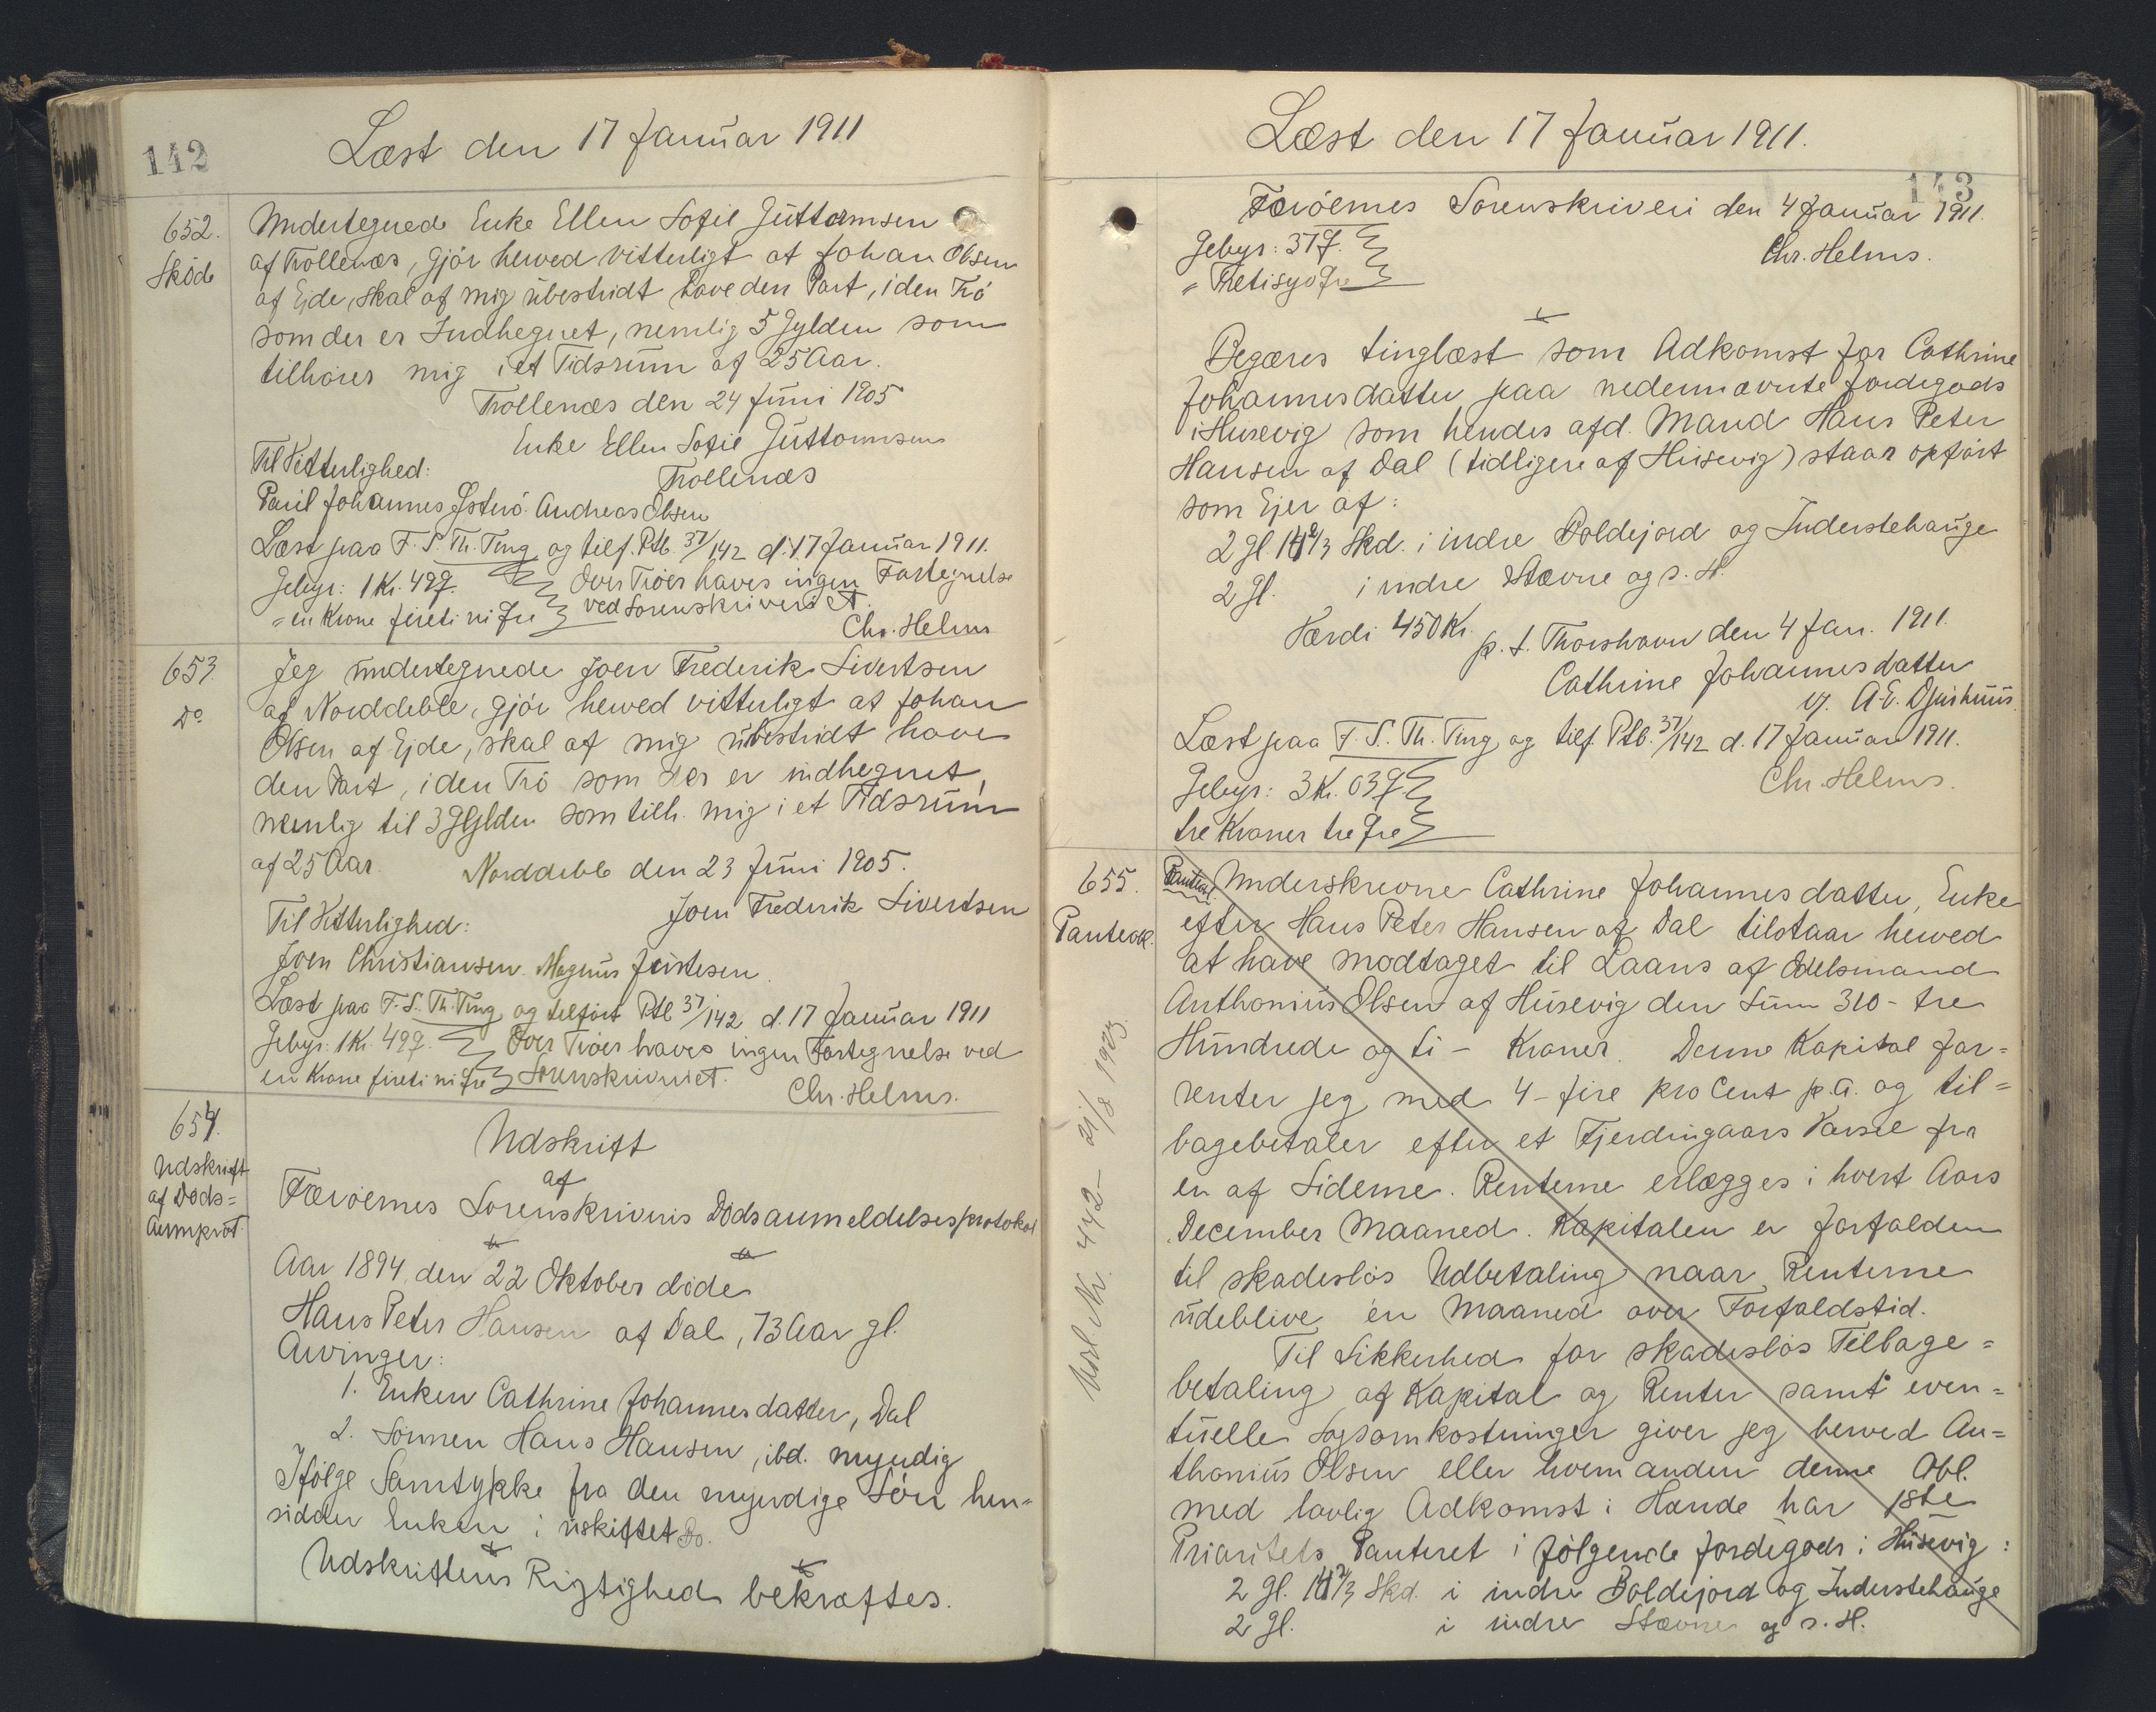 142
Læst den 17 Januar 1911
652.
Skóde
Undertegnede Enke Ellen Sofie Guttormsen
af Trøllenæs, gjór herved vitterligt at Johan Olsen
af Ejde, skal af mig ubestridt have den Part, i den Tró
som der er Indhegnet, nemlig 5 Gylden som
tilhórer mig i et Tidsrum af 25 Aar.
Trøllenæs den 24 Juni 1905
Enke Ellen Sofie Guttormsen
Trøllenæs
Til Vitterlighed:
Paul Johannes Østeró. Andreas Olsen
Læst paa F. S. Th. Ting og tilf. Ptb. 37/142 d. 17 Januar 1911.
Gebyr: 1 Kr. 49 Ø. Over Tróer haves ingen Fortegnelse
= en Krone fireti ni Øre ved Sorenskriveriet.
Chr. Helms
653.
Do
Jeg undertegnede Joen Frederik Sivertsen
af Norddeble, gjór herved vitterligt at Johan
Olsen af Ejde, skal af mig ubestridt have
den Part, i den Tró som der er indhegnet,
nemlig til 3 Gylden som tilh. mig i et Tidsrum
af 25 Aar. Norddeble den 23 Juni 1905.
Joen Frederik Sivertsen
Til Vitterlighed:
Joen Christiansen. Magnus Justesen.
Læst paa F. S. Th. Ting og tilfórt Ptb 37/142 d. 17 Januar 1911
Gebyr: 1 Kr. 49 Ø. Over Tróer haves ingen Fortegnelse ved
en Krone fireti ni Øre Sorenskriveriet.
Chr. Helms.
654.
Udskrift
af Dóds=
Anmprot.
Udskrift
af
Færóernes Sorenskriveris Dódsanmeldelsesprotokol
Aar 1894, den 22 Oktober dóde
Hans Peter Hansen af Dal, 73 Aar gl.
Arvinger:
1. Enken Cathrine Johannesdatter, Dal
2. Sónnen Hans Hansen, ibd. myndig
Ifólge Samtykke fra den myndige Són hen=
sidder Enken i uskiftet Bo.
Udskriftens Rigtighed bekræftes.
Læst den 17 Januar 1911.
143
Færóernes Sorenskriveri den 4 Januar 1911.
Gebyr: 37 Ø.
Chr. Helms.
= Tretisyv Øre
Begæres tinglæst som Adkomst for Cathrine
Johannesdatter paa nedennævnte Jordegods
i Husevig som hendes afd. Mand Hans Peter
Hansen af Dal (tidligere af Husevig) staar opfórt
som Ejer af:
2 Gl. 14 2/3 Skd. i indre Boldejord og Inderstehauge
2 Gl. i indre Stævne og s. H.
Værdi 450 Kr. p. t. Thorshavn den 4 Jan. 1911.
Cathrine Johannesdatter
v. A. E. Djurhuus.
Læst paa F. S. Th. Ting og tilf. Ptb. 37/142 d. 17 Januar 1911.
Gebyr: 3 Kr. 03 Ø.
Chr. Helms.
tre Kroner tre Øre
655.
Panteok.
Underskrevne Cathrine Johannesdatter, Enke
efter Hans Peter Hansen af Dal tilstaar herved
at have modtaget til Laans af Odelsmand
Anthonius Olsen af Husevig den Sum 310 - tre
Hundrede og ti - Kroner. Denne Kapital for=
renter jeg med 4 - fire pro Cent p. a. og til=
bagebetaler efter et Fjerdingaars Varsel fra
en af Siderne. Renterne erlægges i hvert Aars
December Maaned. Kapitalen er forfalden
til skadeslós Udbetaling naar Renterne
udeblive én Maaned over Forfaldstid.
Til Sikkerhed for skadeslós Tilbage=
betaling af Kapital og Renter samt even=
tuelle Sagsomkostninger giver jeg herved An=
thonius Olsen eller hvem anden denne Obl.
med lovlig Adkomst i Hænde har 1ste
Prioritets Panteret i fólgende Jordegods i Husevig:
2 Gl. 14 2/3 Skd. i indre Boldejord og Inderstehauge
2 Gl. i indre Stævne og s. H.
442 - 21/8 1923.